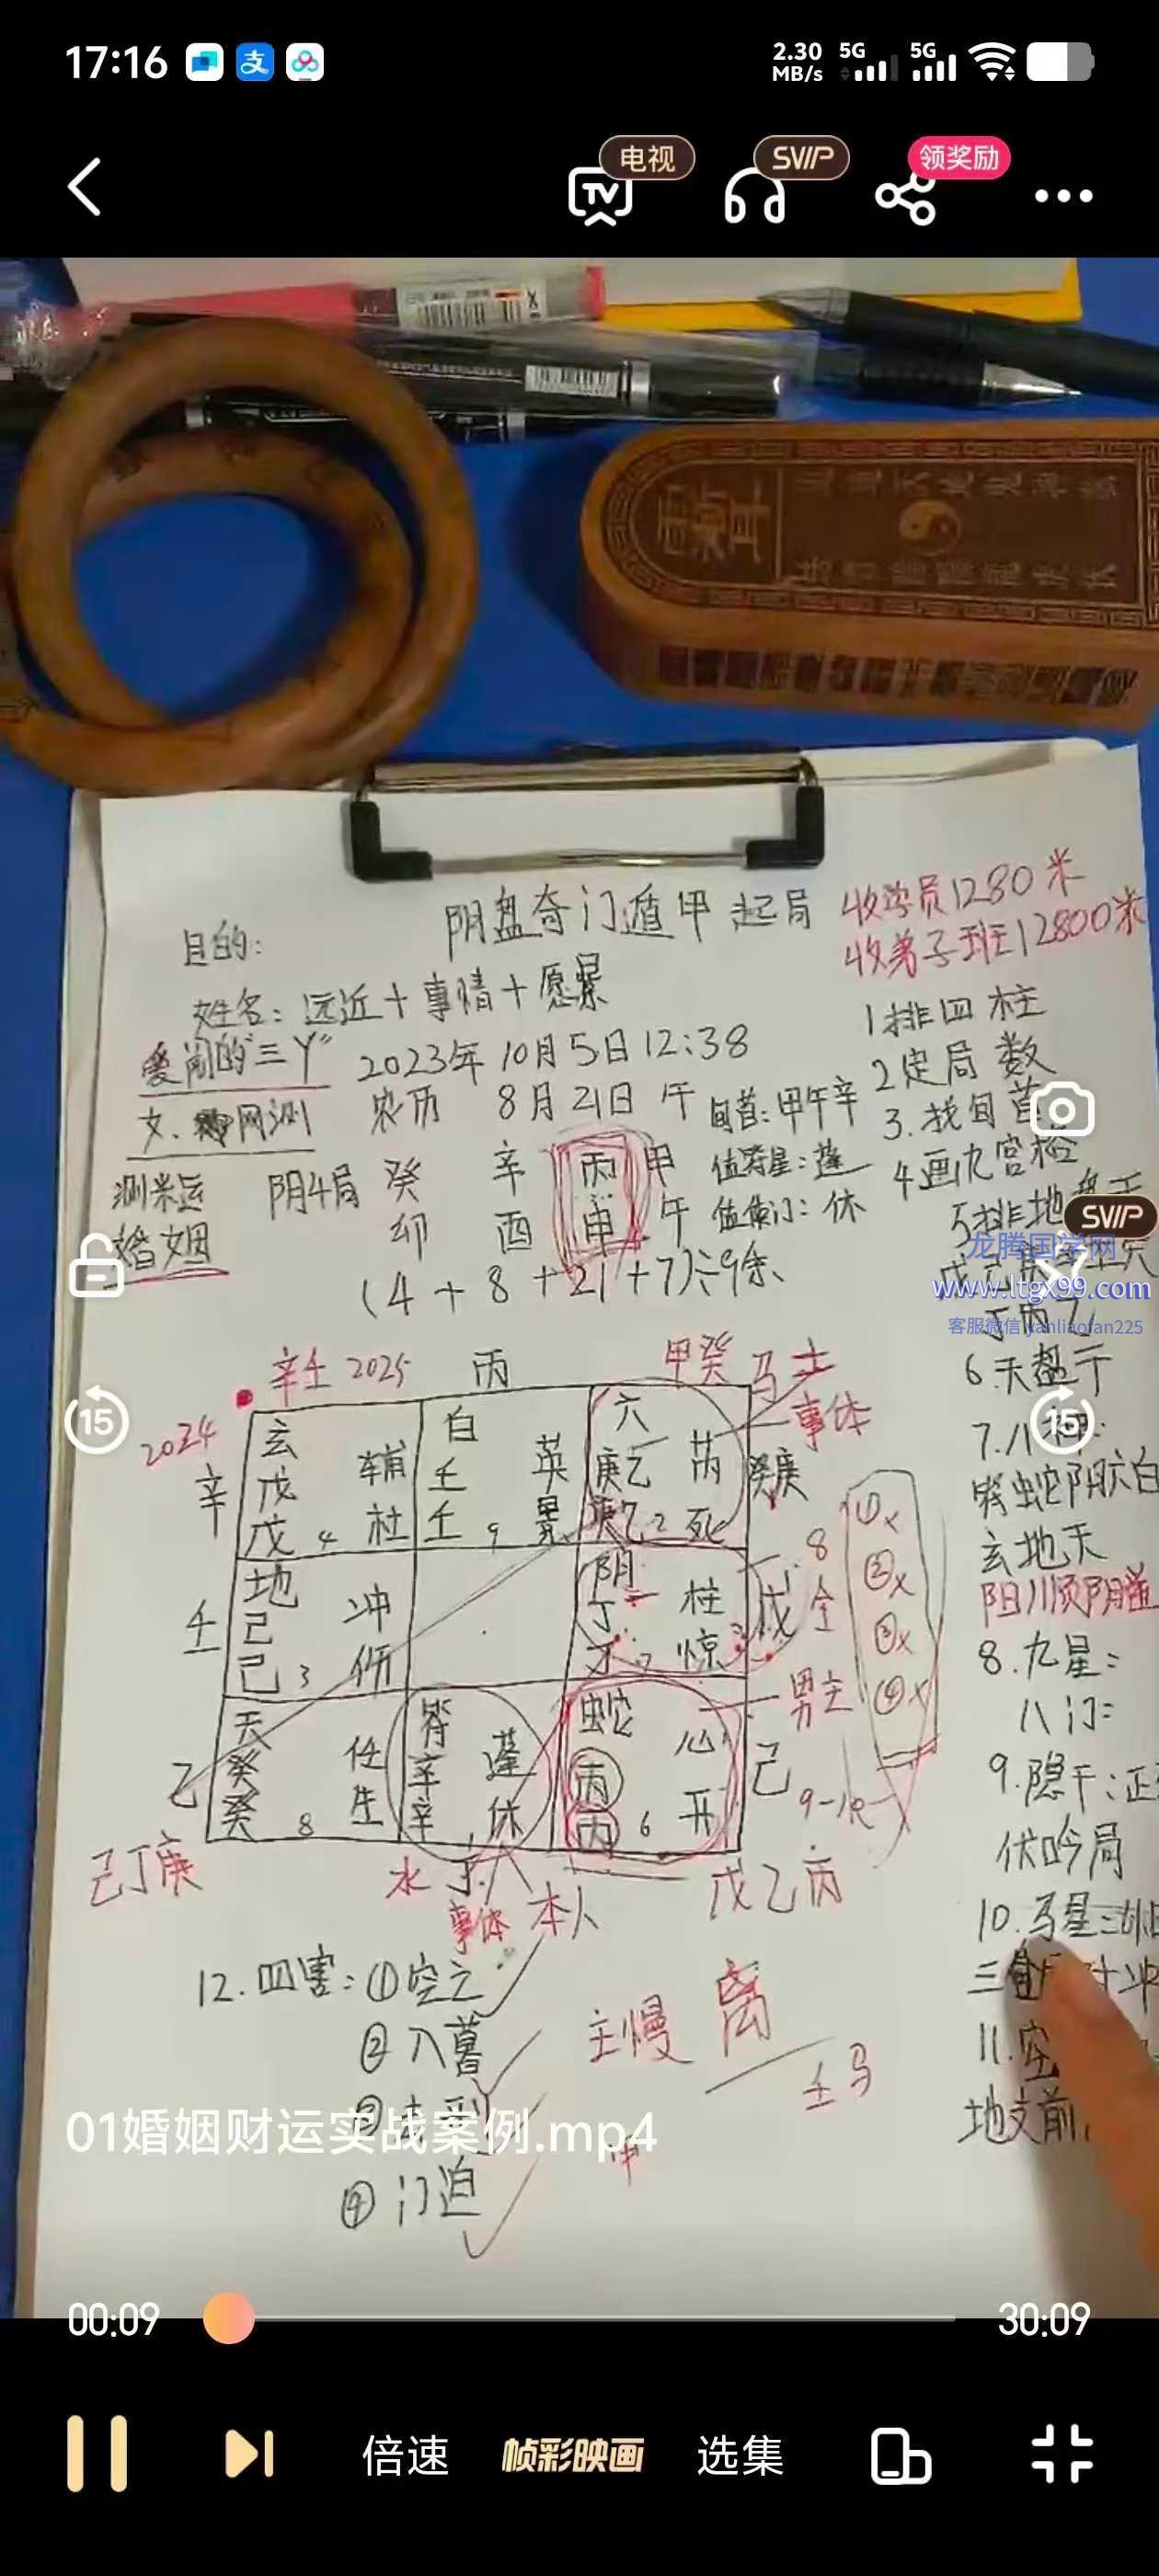 17:16
2.30 MB/s
5G
5G
电视
SVIP
领奖励
TV
阴盘奇门遁甲起局
收学员1280米
收弟子班12800米
目的:
姓名: 远近+事情+愿景
爱闹的"三丫"
2023年10月5日12:38
文、网测
农历 8月21日 午
旬首:甲午辛
测 运
婚姻
阴4局
癸 辛 丙 甲
卯 酉 申 午
值符星:蓬
值使门:休
(4+8+21+7)÷9余
1排四柱
2定局数
3.找旬首
4画九宫格
5排地
SVIP
龙腾国学网
www.ltgx99.com
客服微信 yanliaofan225
丁丙乙
6.天盘干
7.八神:
符蛇阴六白
玄地天
8.九星:
八门:
9.隐干:
伏吟局
10.马星:
11.空
地支前
15
15
辛壬 2025 丙 甲癸 马
2024
辛
玄 辅
戊
戊 4 杜
白 英
壬
壬 9 景
六 芮
庚乙
庚乙 2 死
癸庚
事体
壬
地 冲
己
己 3 伤
阴 柱
丁
丁 7 惊
戊
8
全
①x
②x
③x
④x
乙
天 任
癸
癸 8 生
符 蓬
辛
辛 1 休
蛇 心
丙
丙 6 开
己
男主
己丁庚
水 丁
事体 本人
戊乙丙
12.四害: ①空亡
②入墓
④门迫
主慢 离
壬马
01婚姻财运实战案例.mp4
00:09
30:09
倍速
帧彩映画
选集